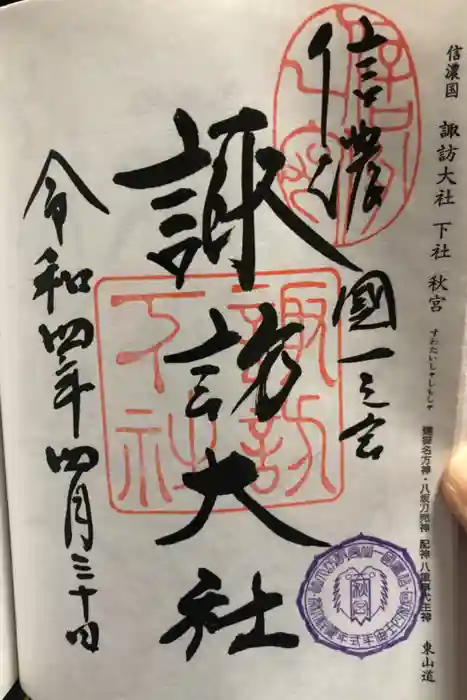 信濃国 諏訪大社 下社 秋宮 すわたいしゃしもしゃ 建御名方神・八坂刀売神 配神 八重事代主神 東山道
信濃國一之宮
諏訪大社
令和四年四月三十日
諏訪
下社